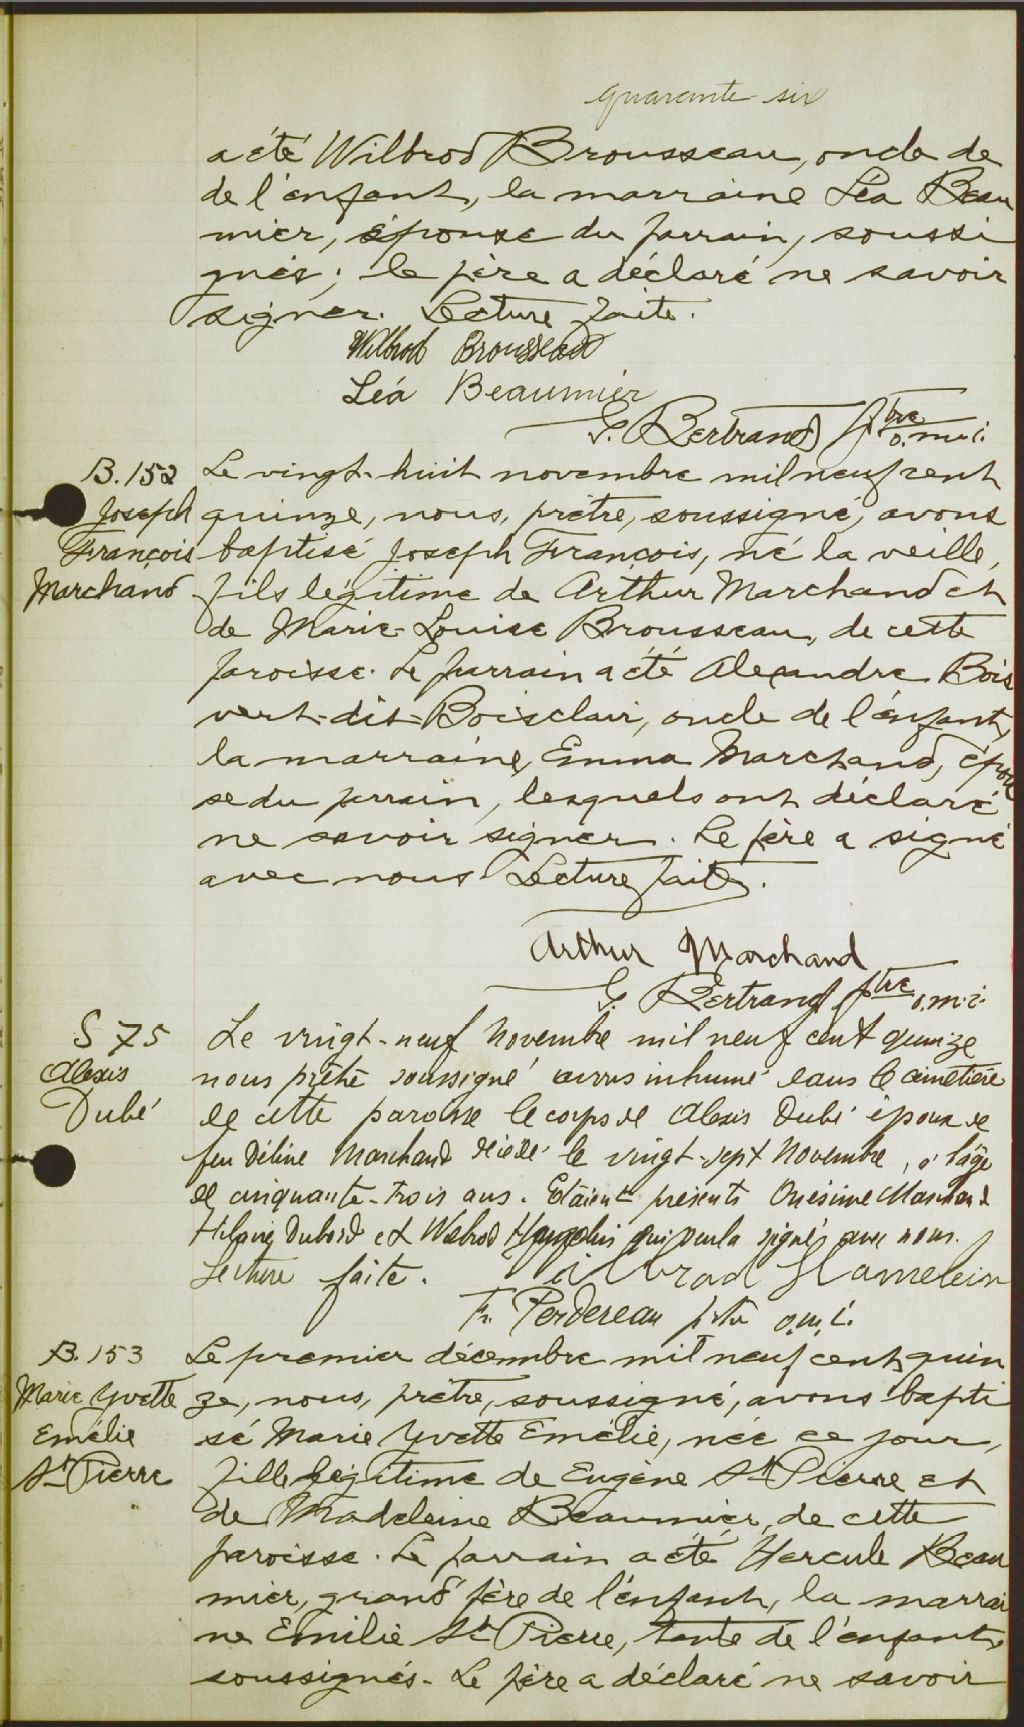 quarante-six
a été Wilbrod Brousseau, oncle de
de l'enfant, la marraine Léa Beau
mier, épouse du parrain, soussi
gnés; le père a déclaré ne savoir
signer. Lecture faite.
Wilbrod Brousseau
Léa Beaumier
G. Bertrand ptre o.m.i.
B. 152
Joseph
François
Marchand
Le vingt-huit novembre mil neuf cent
quinze, nous, prêtre, soussigné, avons
baptisé Joseph François, né la veille,
fils légitime de Arthur Marchand et
de Marie-Louise Brousseau, de cette
paroisse. Le parrain a été Alexandre Bois
vert-dit-Boisclair, oncle de l'enfant,
la marraine, Emma Marchand, épou
se du parrain, lesquels ont déclaré
ne savoir signer. Le père a signé
avec nous Lecture faite.
Arthur Marchand
G. Bertrand ptre o.m.i.
S 75
Alexis
Dubé
Le vingt-neuf Novembre mil neuf cent quinze
nous prêtre soussigné avons inhumé dans le cimetière
de cette paroisse le corps de Alexis Dubé époux de
feu Déline Marchand décédé le vingt-sept Novembre, à l'âge
de cinquante-trois ans. Etaient présents Onésime Marchand
Hilaire Dubord et Walrod Hamelin qui seul a signé avec nous.
Lecture faite. Hamelein
Fr. Perdereau ptre o.m.i.
B. 153
Marie Yvette
Emélie
St Pierre
Le premier décembre mil neuf cent quin
ze, nous, prêtre, soussigné, avons bapti
sé Marie Yvette Emélie, née ce jour,
fille légitime de Eugène St Pierre et
de Madeleine Beaumier, de cette
paroisse. Le parrain a été Hercule Beau
mier, grand'père de l'enfant, la marrai
ne Emilie St Pierre, tante de l'enfant,
soussignés. Le père a déclaré ne savoir